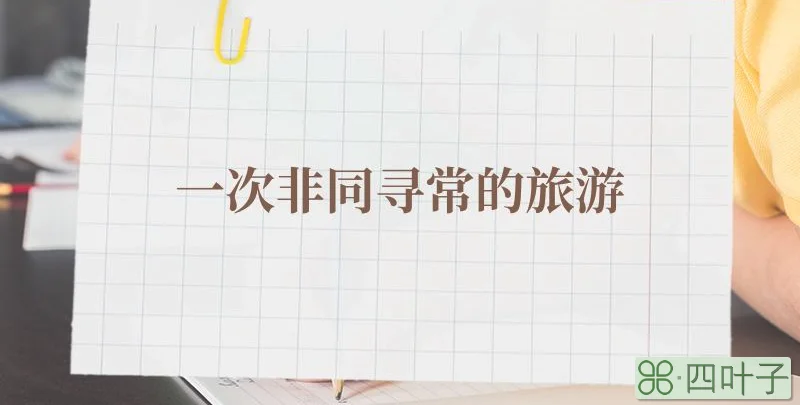 一次非同寻常的旅游
四叶子